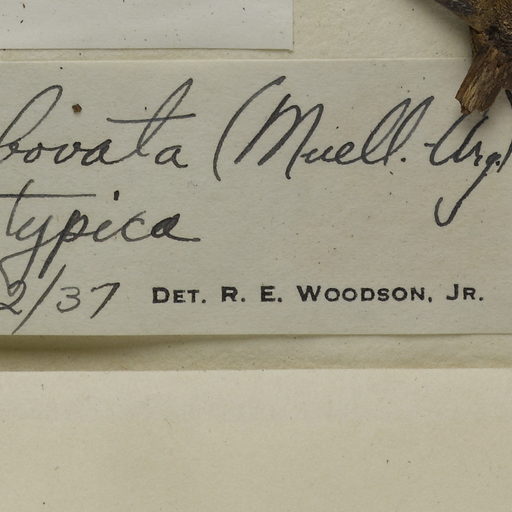 bovata (Muell.-Arg.)
typica
2/37 DET. R. E. WOODSON, JR.